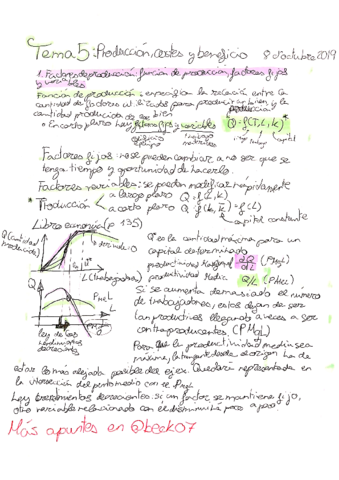 Tema 5: Producción, costes y beneficio 8 octubre 2019
1. Factores de producción: función de producción, factores fijos
y variables
Función de producción: especifica la relación entre la
cantidad de factores utilizados para producir un bien y la
cantidad producida de ese bien
En corto plazo hay fijos y variables Q = f(T, L, K)
trabajo capital
Factores fijos: no se pueden cambiar a no ser que se
tenga tiempo y oportunidad de hacerlo.
Factores variables: se pueden modificar rápidamente
Producción a largo plazo Q = f(L, K)
a corto plazo Q = f(L, K̄) = f(L)
capital constante
Libro economía (p 135)
Q (cantidad
producida)
L (trabajadores)
Q es la cantidad máxima para un
capital determinado
productividad Marginal dQ/dL (PMgL)
productividad Media Q/L (PMeL)
Si se aumenta demasiado el número
de trabajadores, estos dejan de ser
tan productivos llegando a veces a ser
contraproducentes (PMgL)
Q
PMeL
L
Ley de los
rendimientos
decrecientes
Para que la productividad media sea
máxima, la tangente desde el origen ha de
estar lo más alejada posible del eje x. Quedaría representada en
la intersección del punto medio con el PMgL
Ley rendimientos decrecientes: si un factor se mantiene fijo,
otro variable relacionado con él disminuirá poco a poco
Más apuntes en @beck07